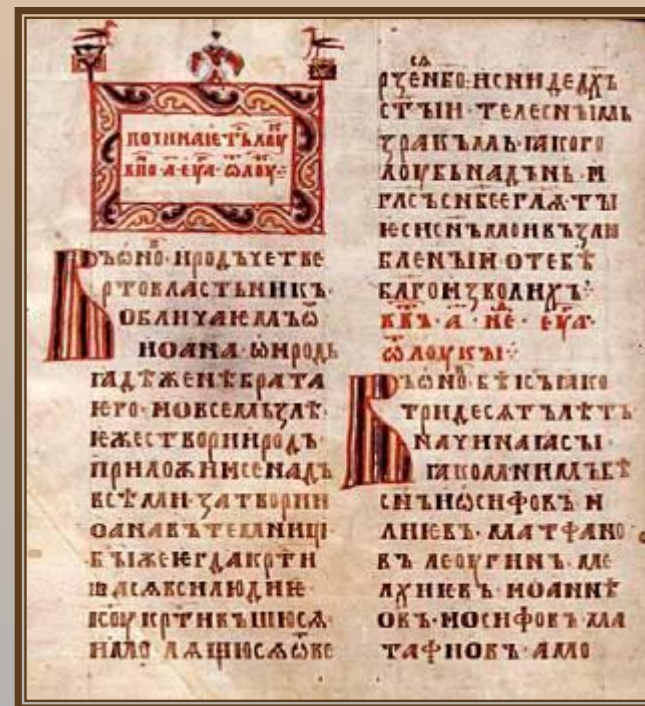 ПОЧИНАѤТЬЛОУ
ВЪѠНО·ИРОДЪЧЕТВЕ
РТОВЛАСТЬНИКЪ·
ОБЛИЧАѤМЪѠ
ИОАНА·ѠИРОДЬ
ꙖДѢЖЕНѢБРАТА
ѤГО·ИОВСЕМЬЗЛѢ·
ѤЖЕСТВОРИИРОДЪ·
ПРИЛОЖИИСЕНАДЪ
ВСѢМИ·ЗАТВОРИИ
ОАНАВЪТЕМЬНИЦІ·
БЫЖЕѤГДАКРТИ
ШАСѦВСИЛЮДИѤ·
ІСОУКРТИВЪШЮСѦ·
ИМО ЛѦЩЮСѦѾВЕ
СѦ
РЗЕНБО·ИСНИДЕДХЪ
СТЫИ·ТЕЛЕСНЫМЬ
ЗРАКЪМЬ·ꙖКОГО
ЛОУБЬНАДЪНЬ·И
ГЛСЪСНБСЕГЛѦ·ТЫ
ѤСИСНЪМОИВЪЗЛЮ
БЛЕНЫИ·ОТЕБѢ
БЛГОИЗВОЛИХЪ·:·
ѾЛОУКЫ·:·
ВЪѠНО·БѢІСЪꙖКО
ТРИДЕСѦТЪЛѢТЪ·
НАЧИНАꙖСЫ·
ꙖКОМЬНИМЪБѢ
СНЪИѠСИФОВЪ·И
ЛИЕВЪ·МАТФАНО·
ВЪ ЛЕОУГИНЪ·МЕ
ЛХИЕВЪ·ИОАННѢ
ОВЪ·ИОСИФОВЪ·МА
ТАФИОВЪ·АМО